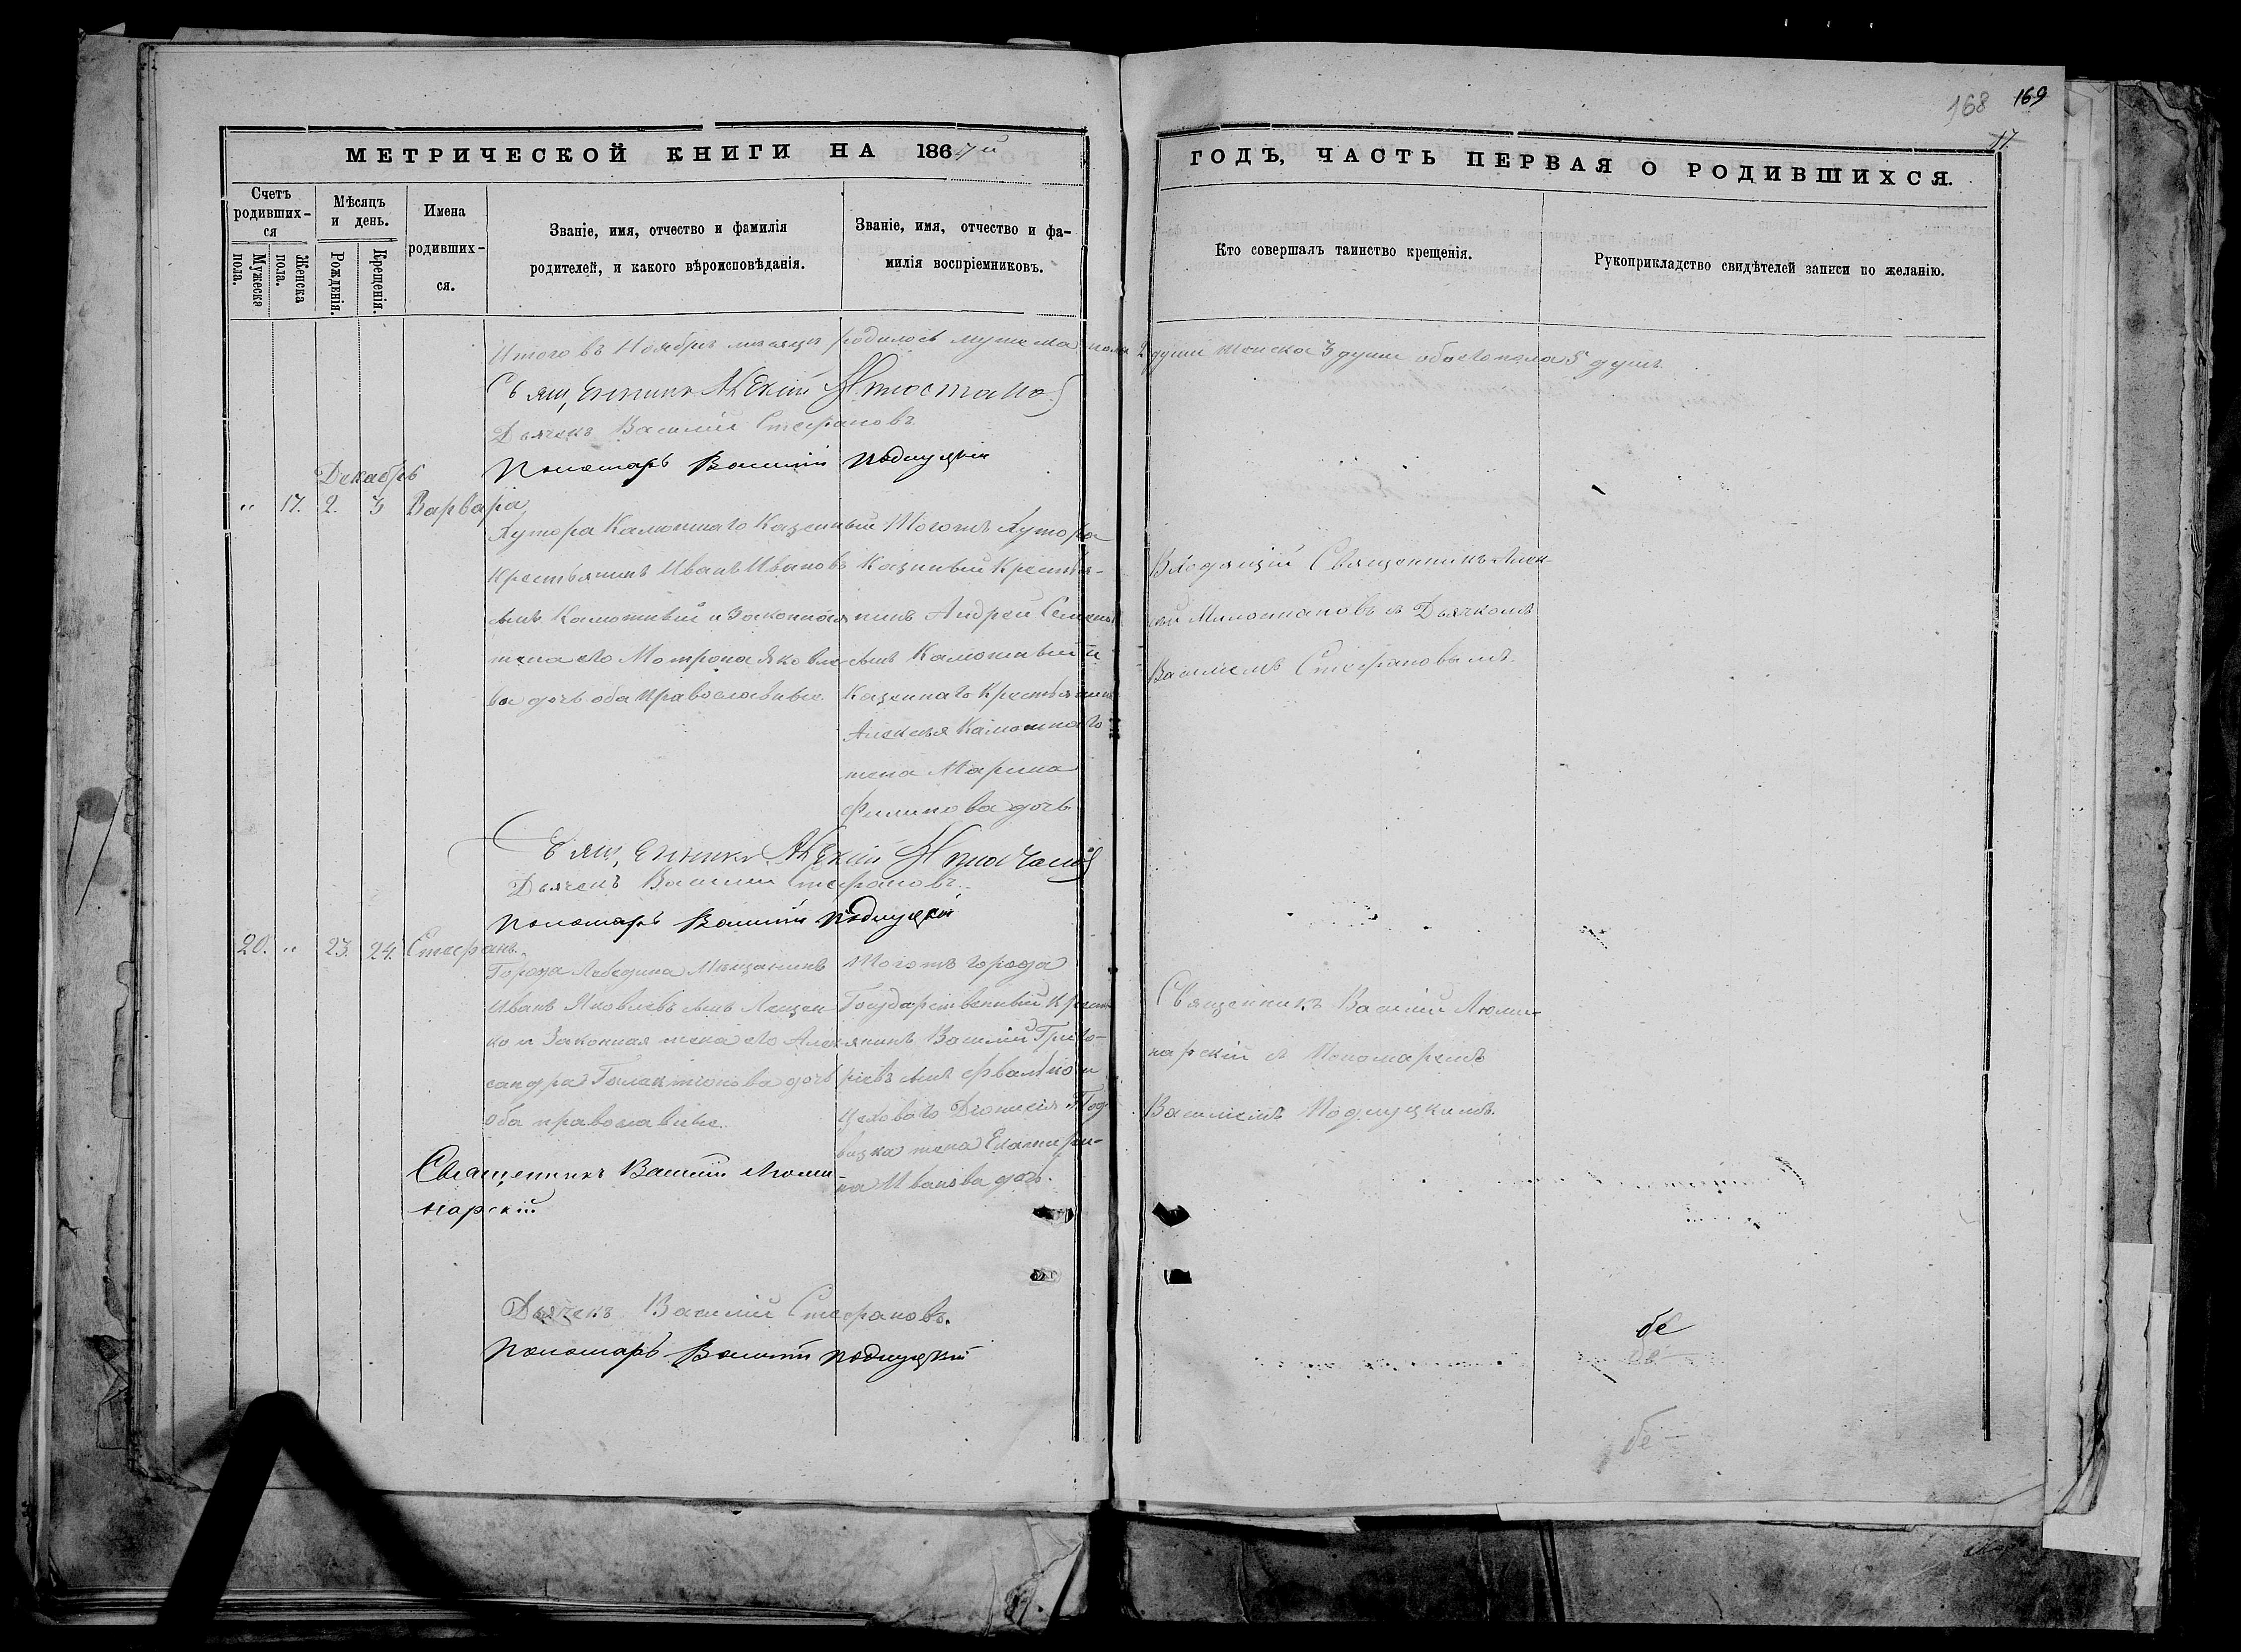 168 169
17
МЕТРИЧЕСКОЙ КНИГИ НА 1867й
ГОДЪ, ЧАСТЬ ПЕРВАЯ О РОДИВШИХСЯ.
Счетъ родивших-ся
Мужеска пола.
Женска пола.
Мѣсяцъ и день.
Рожденія.
Крещенія.
Имена родивших-ся.
Званіе, имя, отчество и фамилія
родителей, и какого вѣроисповѣданія.
Званіе, имя, отчество и фа-
милія воспріемниковъ.
Кто совершалъ таинство крещенія.
Рукоприкладство свидѣтелей записи по желанію.
Итого въ Ноябрѣ мѣсяцѣ родилось мужеска пола 2 души женска 3 души обоего пола 5 душъ
Священникъ Алексій
Дьячекъ Василій Стефановъ
Пономарь Василій Подлуцкій
Декабрь
" 17. 2. 3 Варвара
Хутора Калюжнаго Казенный
Крестьянинъ Иванъ Ивановъ
сынъ Калюжный и Законная
жена его Мотрона Яковле-
ва дочь оба православные.
Тогожъ Хутора
Казенный Крестья-
нинъ Андрей Семеновъ
сынъ Калюжный и
Казеннаго Крестьянина
Алексѣя Калюжнаго
жена Марина
Филипова дочь
Священникъ Алек-
сѣй съ Дьячкомъ
Василіемъ Стефановымъ.
Священникъ Алексій
Дьячекъ Василій Стефановъ.
Пономарь Василій Подлуцкій
20. " 23. 24. Стефанъ.
Города Лебедина Мѣщанинъ
Иванъ Яковлевъ сынъ Лещен-
ко и Законная жена его Алек-
сандра Галактіонова дочь
оба православные.
Тогожъ города
Государственный Кресть-
янинъ Василій Григо-
ріевъ сынъ и
Цеховаго Діонисія
жена Екатери-
на Иванова дочь.
Священникъ Василій Люми-
нарскій съ Пономаремъ
Василіемъ Подлуцкимъ.
Священникъ Василій Люми-
нарскій
Дьячекъ Василій Стефановъ.
Пономарь Василій Подлуцкій